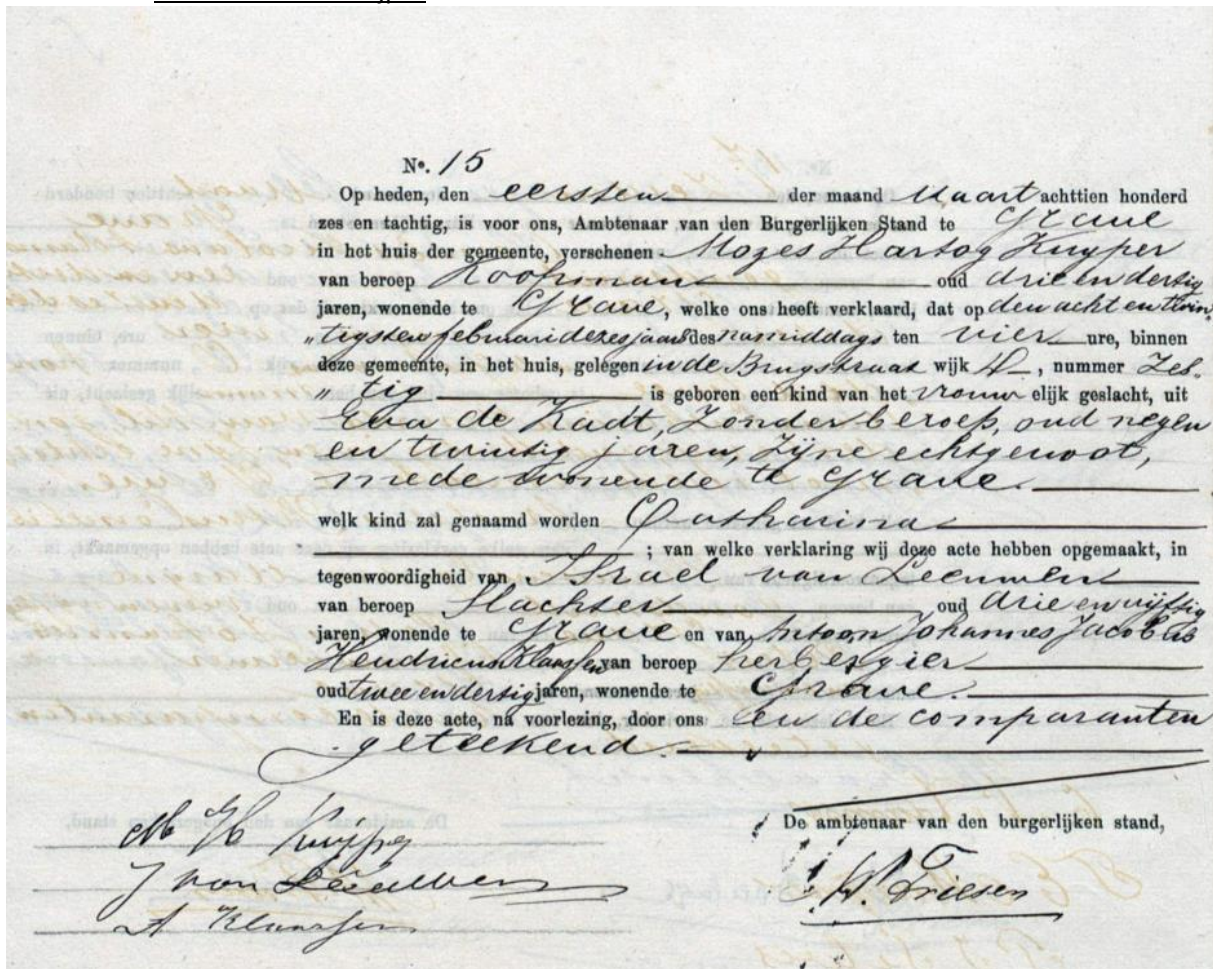 No. 15
Op heden, den eersten der maand Maart achttien honderd
zes en tachtig, is voor ons, Ambtenaar van den Burgerlijken Stand te Grave
in het huis der gemeente, verschenen Mozes Hartog Kuyper
van beroep Koopman oud drie en dertig
jaren, wonende te Grave, welke ons heeft verklaard, dat op den acht en twin-
"tigsten februari dezes jaars des namiddags ten vier ure, binnen
deze gemeente, in het huis, gelegen in de Brugstraat wijk A, nummer Zeb-
"tig is geboren een kind van het vrouwelijk geslacht, uit
Eva de Kadt, Zonder beroep, oud negen
en twintig jaren, Zijne echtgenoot,
mede wonende te Grave.
welk kind zal genaamd worden Catharina
; van welke verklaring wij deze acte hebben opgemaakt, in
tegenwoordigheid van Israel van Leeuwen
van beroep Slachter oud drie en vijftig
jaren, wonende te Grave en van Antoon Johannes Jacobus
Hendricus Klaassen van beroep herbergier
oud twee en dertig jaren, wonende te Grave.
En is deze acte, na voorlezing, door ons en de comparanten
geteekend.
De ambtenaar van den burgerlijken stand,
M H Kuyper
J van Leeuwen
A Klaassen